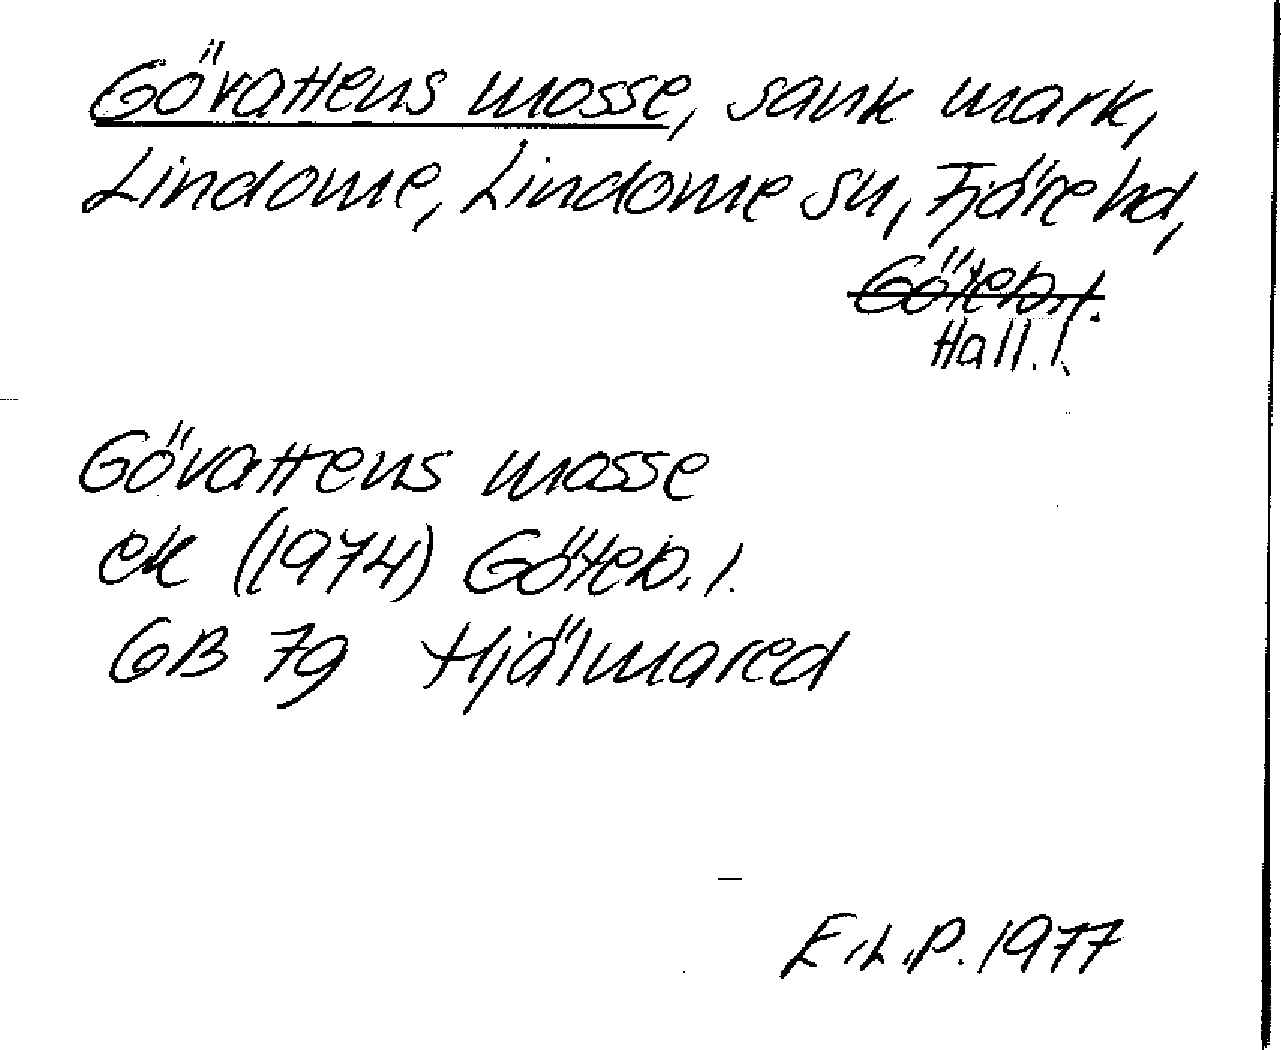 Gövattens mosse, sank mark,
Lindome, Lindome sn, Fjäre hd,
Göteb. l.
Hall. l.
Gövattens mosse
ek (1974) Göteb. l.
GB 7g Hjälmared
E.L.P. 1977